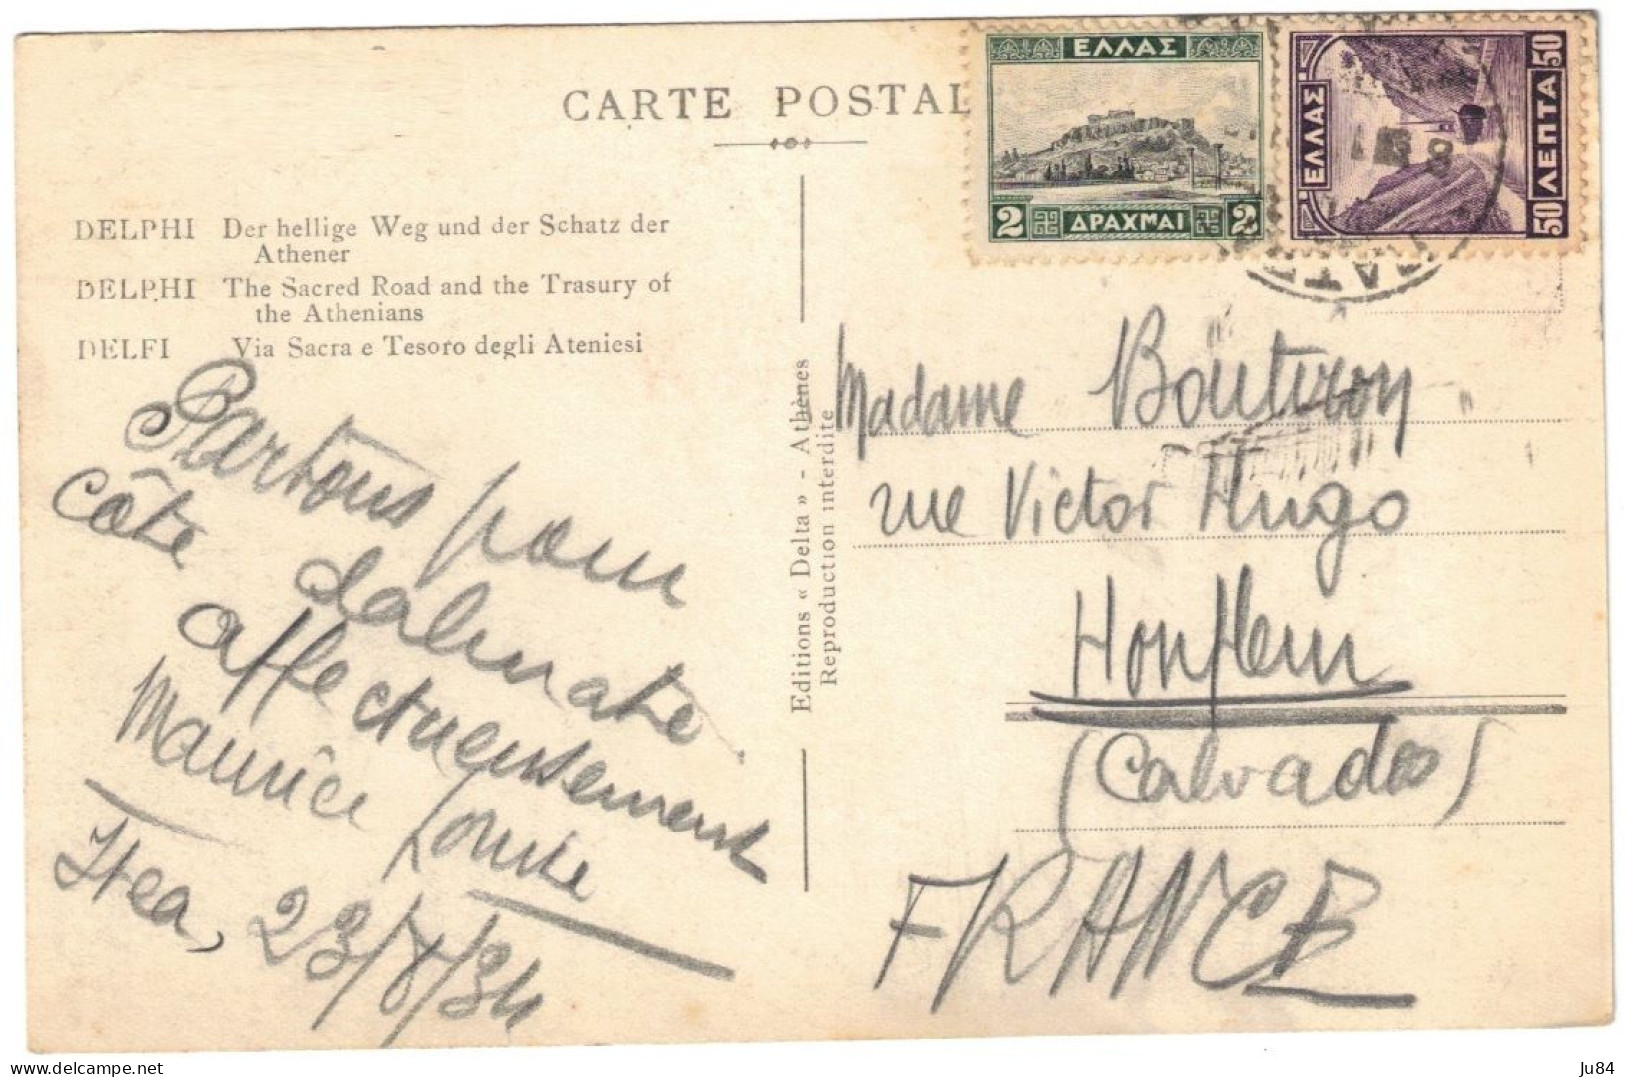 CARTE POSTAL
ΕΛΛΑΣ
2 ΔΡΑΧΜΑΙ 2
ΕΛΛΑΣ
50 ΛΕΠΤΑ 50
DELPHI Der hellige Weg und der Schatz der
Athener
DELPHI The Sacred Road and the Trasury of
the Athenians
DELFI Via Sacra e Tesoro degli Ateniesi
Partons pour
côte dalmate.
affectueusement
Maurice Louise
Itea, 23/8/34
Editions « Delta » - Athènes
Reproduction interdite
Madame Boutiron
rue Victor Hugo
Honfleur
(Calvados)
FRANCE
Ju84